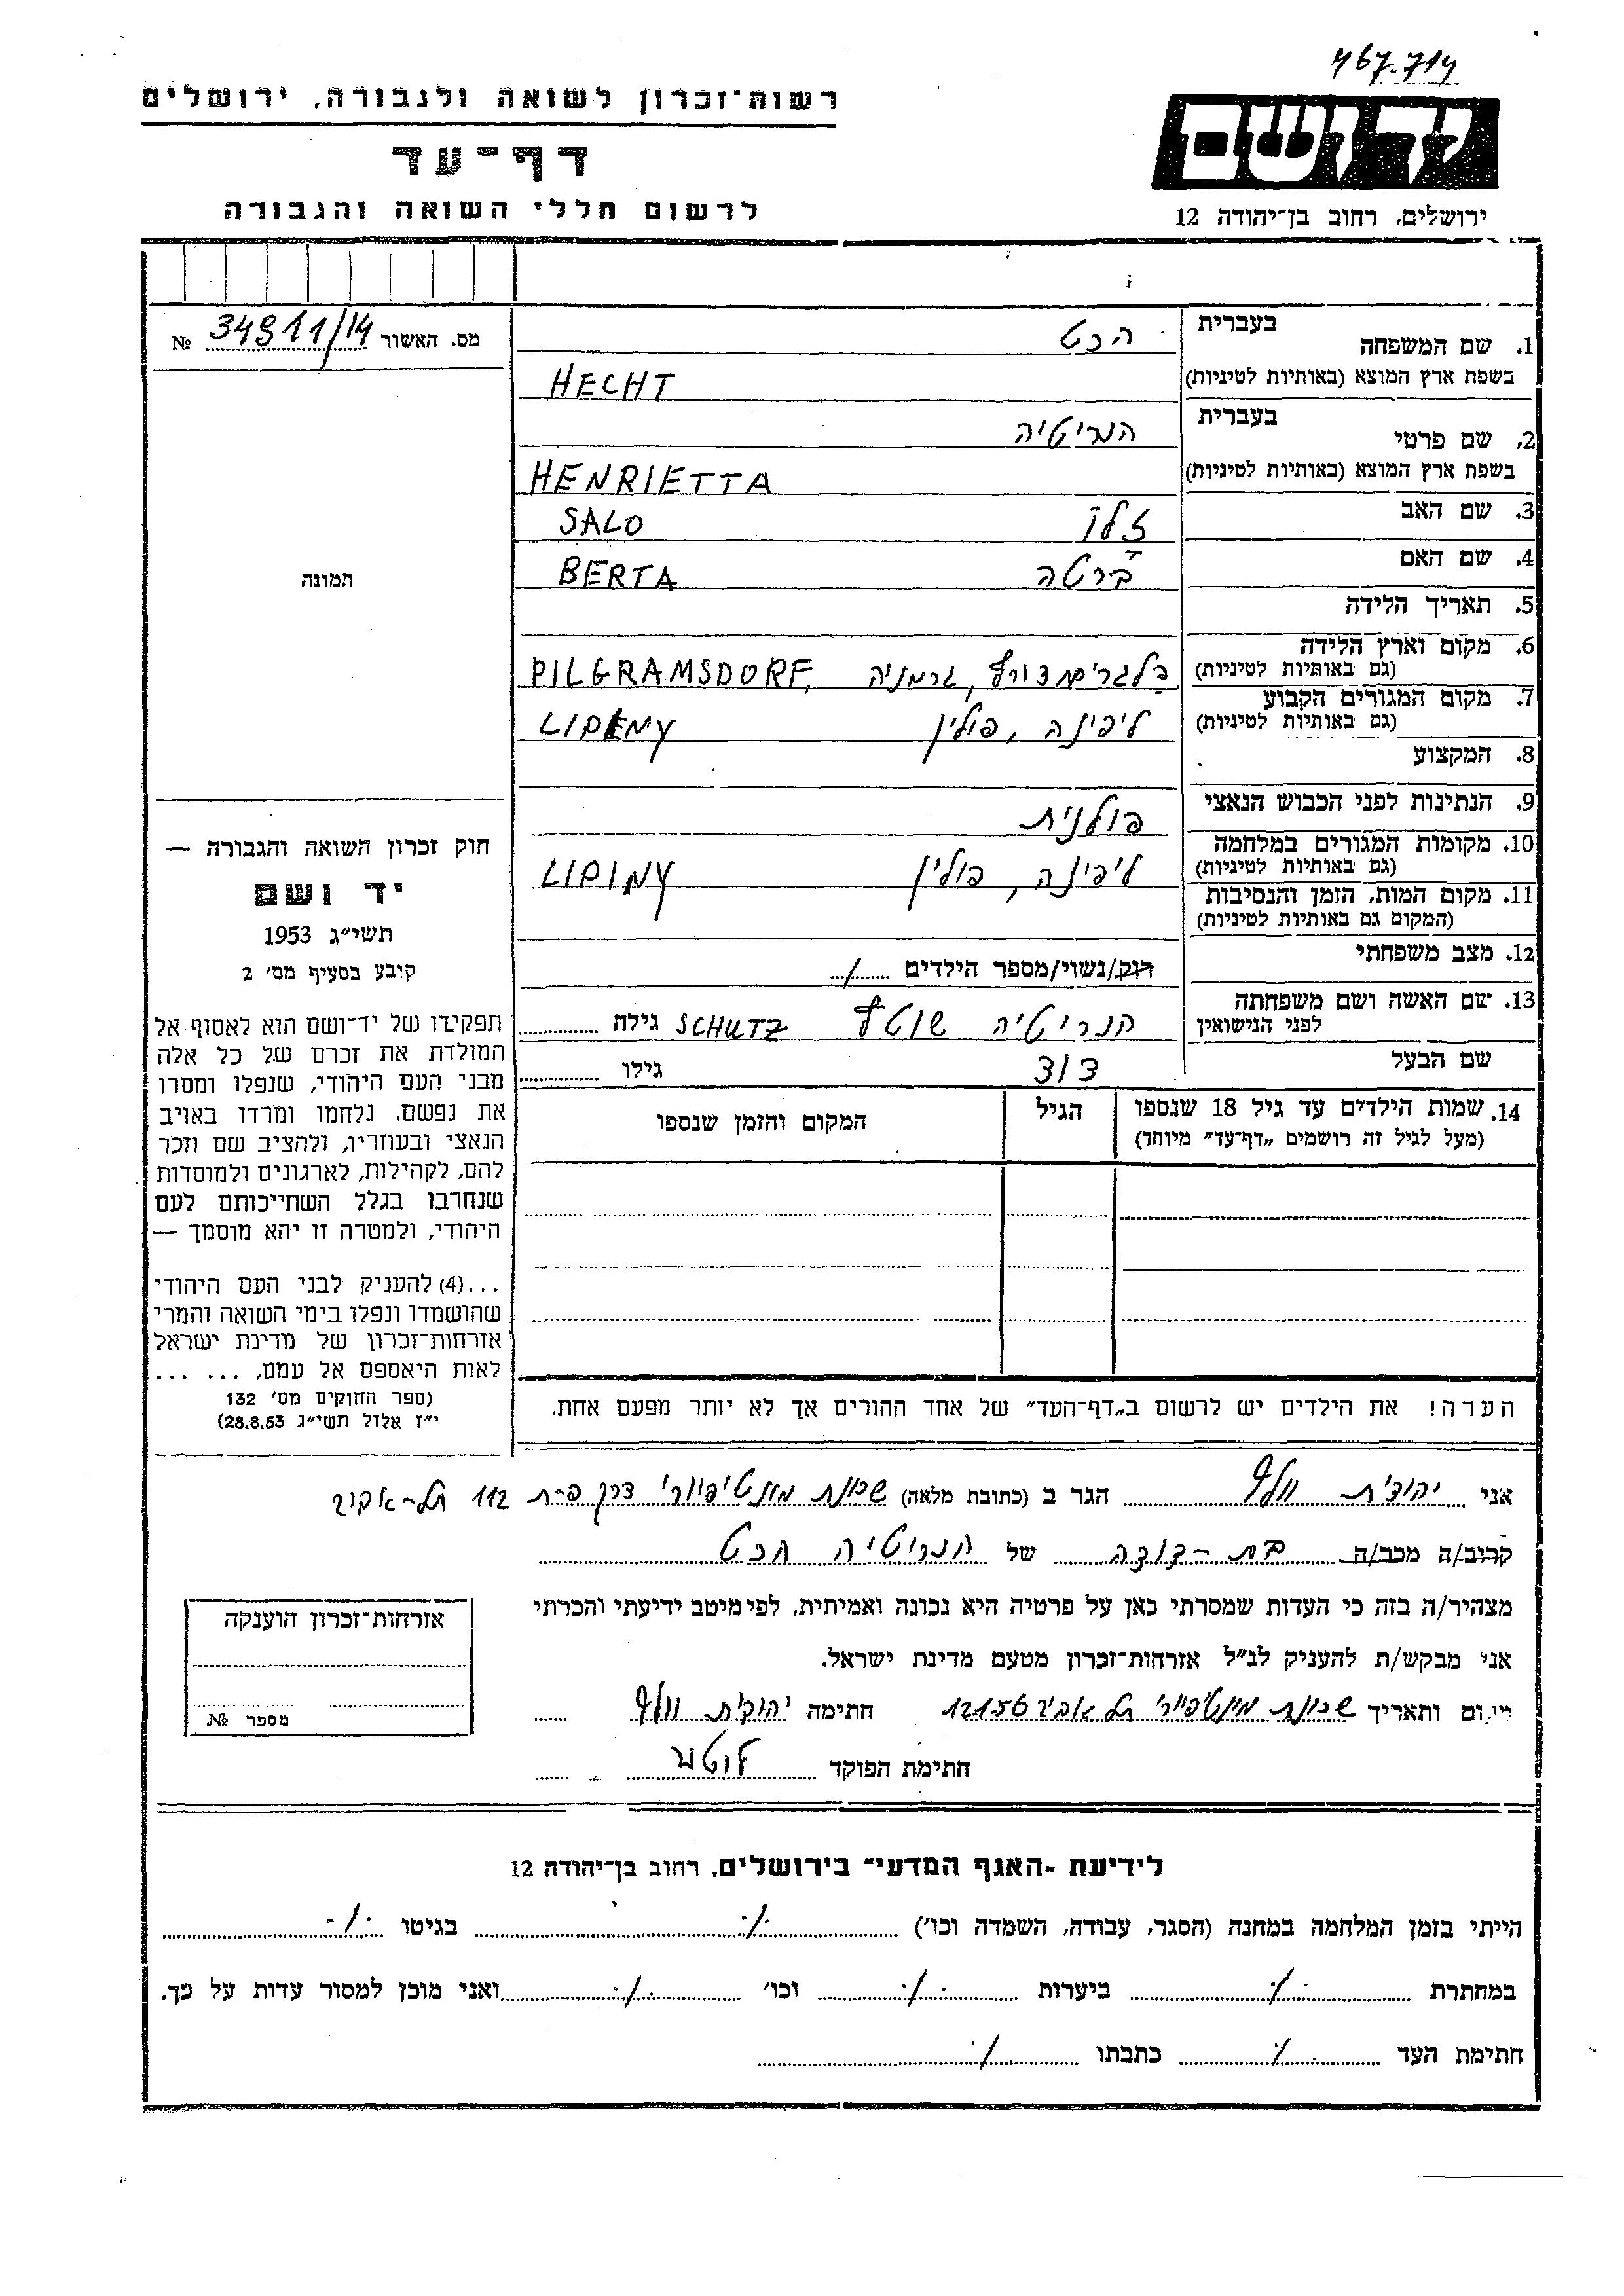 467.714
רשות־זכרון לשואה ולגבורה, ירושלים
יד ושם
דף־עד
לרשום חללי השואה והגבורה
ירושלים, רחוב בן־יהודה 12
מס. האשור 34911/14 №
1. שם המשפחה בעברית הכט
בשפת ארץ המוצא (באותיות לטיניות) HECHT
2. שם פרטי בעברית הנריטיה
בשפת ארץ המוצא (באותיות לטיניות) HENRIETTA
3. שם האב זלו SALO
4. שם האם ברטה BERTA
5. תאריך הלידה
6. מקום וארץ הלידה
(גם באותיות לטיניות) פלגרימסדורף, גרמניה PILGRAMSDORF,
7. מקום המגורים הקבוע
(גם באותיות לטיניות) ליפינה, פולין LIPINY
8. המקצוע
9. הנתינות לפני הכבוש הנאצי פולנית
10. מקומות המגורים במלחמה
(גם באותיות לטיניות) ליפינה, פולין LIPINY
11. מקום המות, הזמן והנסיבות
(המקום גם באותיות לטיניות)
12. מצב משפחתי רוק/נשוי/מספר הילדים
13. שם האשה ושם משפחתה
לפני הנישואין הנריטיה שוטץ SCHUTZ גילה
שם הבעל דוד גילו
14. שמות הילדים עד גיל 18 שנספו
(מעל לגיל זה רושמים „דף־עד" מיוחד)
הגיל
המקום והזמן שנספו
הערה! את הילדים יש לרשום ב„דף־העד" של אחד ההורים אך לא יותר מפעם אחת.
תמונה
חוק זכרון השואה והגבורה —
יד ושם
תשי"ג 1953
קובע בסעיף מס' 2
תפקידו של יד־ושם הוא לאסוף אל
המולדת את זכרם של כל אלה
מבני העם היהודי, שנפלו ומסרו
את נפשם. נלחמו ומרדו באויב
הנאצי ובעוזריו, ולהציב שם וזכר
להם, לקהילות, לארגונים ולמוסדות
שנחרבו בגלל השתייכותם לעם
היהודי, ולמטרה זו יהא מוסמך —
...(4) להעניק לבני העם היהודי
שהושמדו ונפלו בימי השואה והמרי
אזרחות־זכרון של מדינת ישראל
לאות היאספם אל עמם, ... ...
(ספר החוקים מס' 132
י"ז אלול תשי"ג 28.8.53)
אני יהודית וולף הגר ב (כתובת מלאה) שכונת מונטיפיורי דרך פ–ת 112 תל–אביב
קרוב/ה מכר/ה בת–דודה של הנריטיה הכט
מצהיר/ה בזה כי העדות שמסרתי כאן על פרטיה היא נכונה ואמיתית, לפי מיטב ידיעתי והכרתי
אני מבקש/ת להעניק לנ"ל אזרחות־זכרון מטעם מדינת ישראל.
מקום ותאריך שכונת מונטיפיורי תל אביב 12156 חתימה יהודית וולף
חתימת הפוקד
אזרחות־זכרון הוענקה
מספר №
לידיעת „האגף המדעי" בירושלים, רחוב בן־יהודה 12
הייתי בזמן המלחמה במחנה (הסגר, עבודה, השמדה וכו') ./. בגיטו ./.
במחתרת ./. ביערות ./. וכו' ./. ואני מוכן למסור עדות על כך.
חתימת העד ./. כתבתו ./.